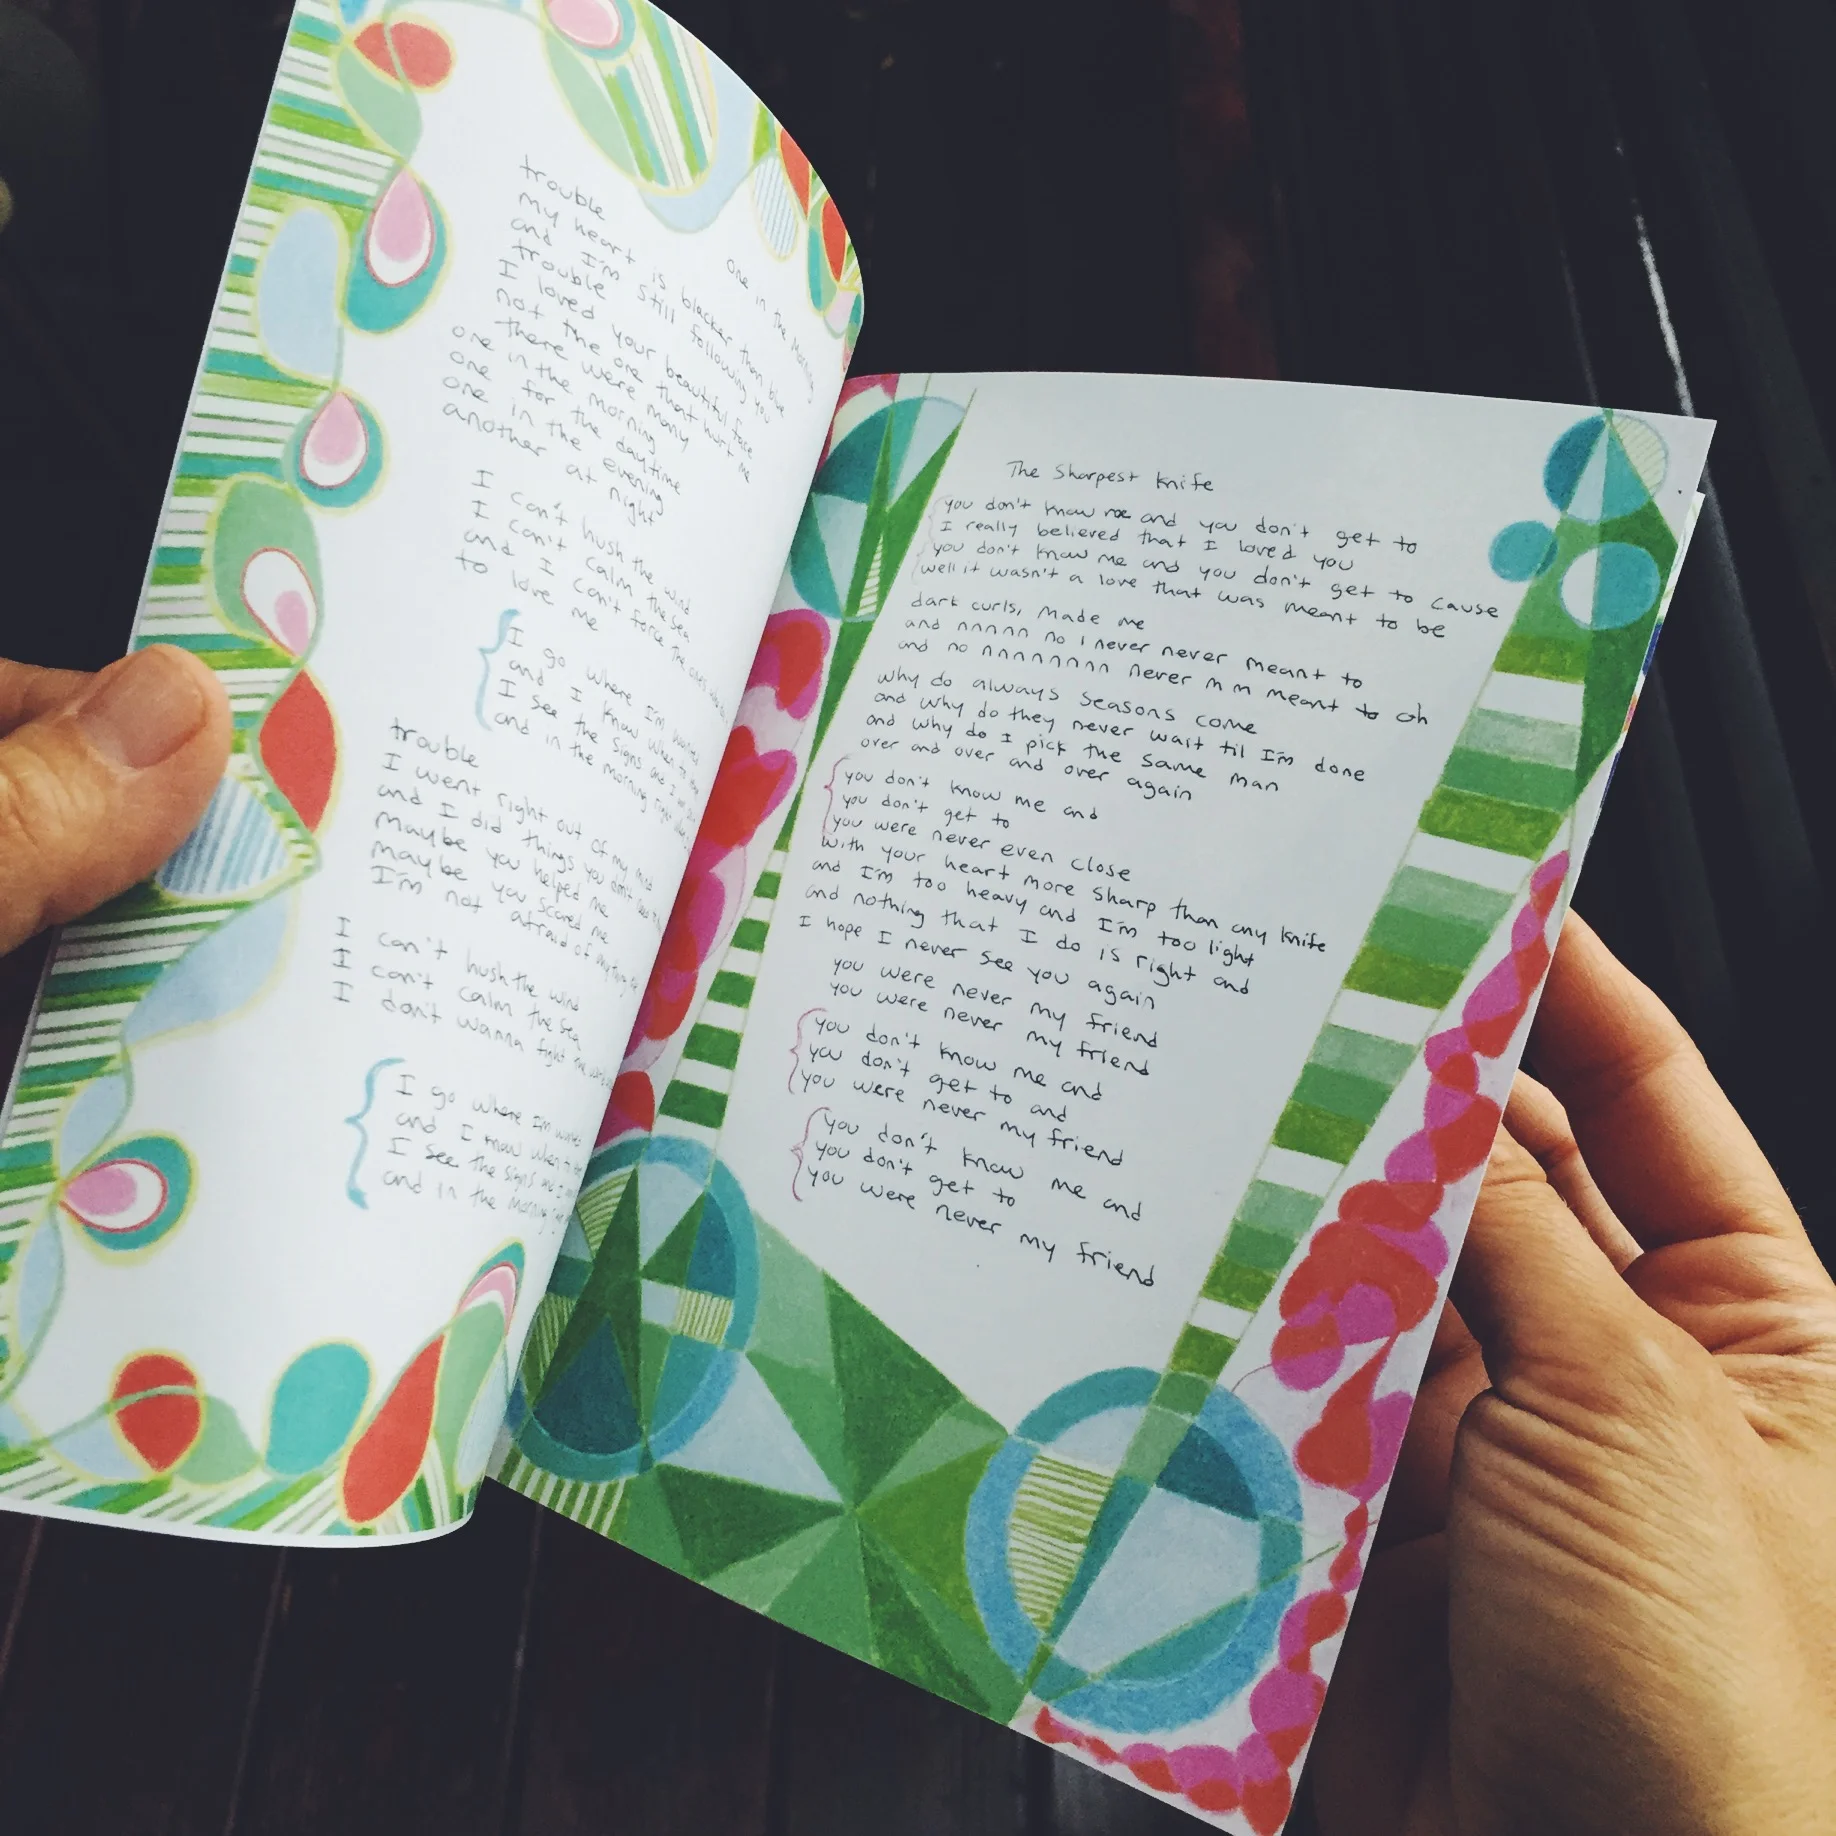 one in the morning
trouble
my heart is blacker than blue
and I'm still following you
trouble
I loved your beautiful face
not the one that hurt me
there were many
one in the morning
one for the daytime
one in the evening
another at night
I can't hush the wind
I can't calm the sea
and I can't force the ones
to love me
I go where I'm wanted
and I know when to
I see the signs and I
and in the morning
trouble
I went right out of my mind
and I did things you don't
Maybe you helped me
maybe you scared me
I'm not afraid of anything
I can't hush the wind
I can't calm the sea
I don't wanna fight
I go where I'm wanted
and I know when to
I see the signs and I
and in the morning
The Sharpest Knife
you don't know me and you don't get to
I really believed that I loved you
you don't know me and you don't get to cause
well it wasn't a love that was meant to be
dark curls, made me
and nnnnn no I never never meant to
and no nnnnnnnn never m m meant to oh
why do always seasons come
and why do they never wait til I'm done
and why do I pick the same man
over and over and over again
you don't know me and
you don't get to
you were never even close
with your heart more sharp than any knife
and I'm too heavy and I'm too light
and nothing that I do is right and
I hope I never see you again
you were never my friend
you were never my friend
you don't know me and
you don't get to and
you were never my friend
you don't know me and
you don't get to
you were never my friend